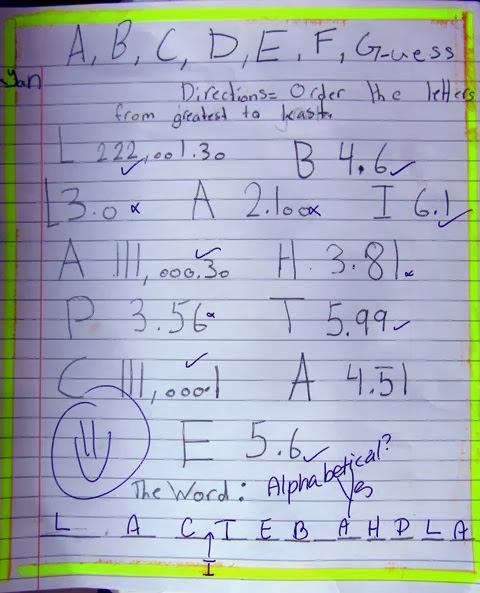 A, B, C, D, E, F, G-uess
yan
Directions= Order the letters
from greatest to least.
L 222,001.30 B 4.6 ✓
✓
L 3.0 A 2.100 I 6.1 ✓
A 111,000.30 ✓ H 3.81
P 3.56 T 5.99 ✓
C 111,000.1 ✓ A 4.51
E 5.6 ✓
The Word: Alphabetical?
Yes
L A C T E B A H P L A
I